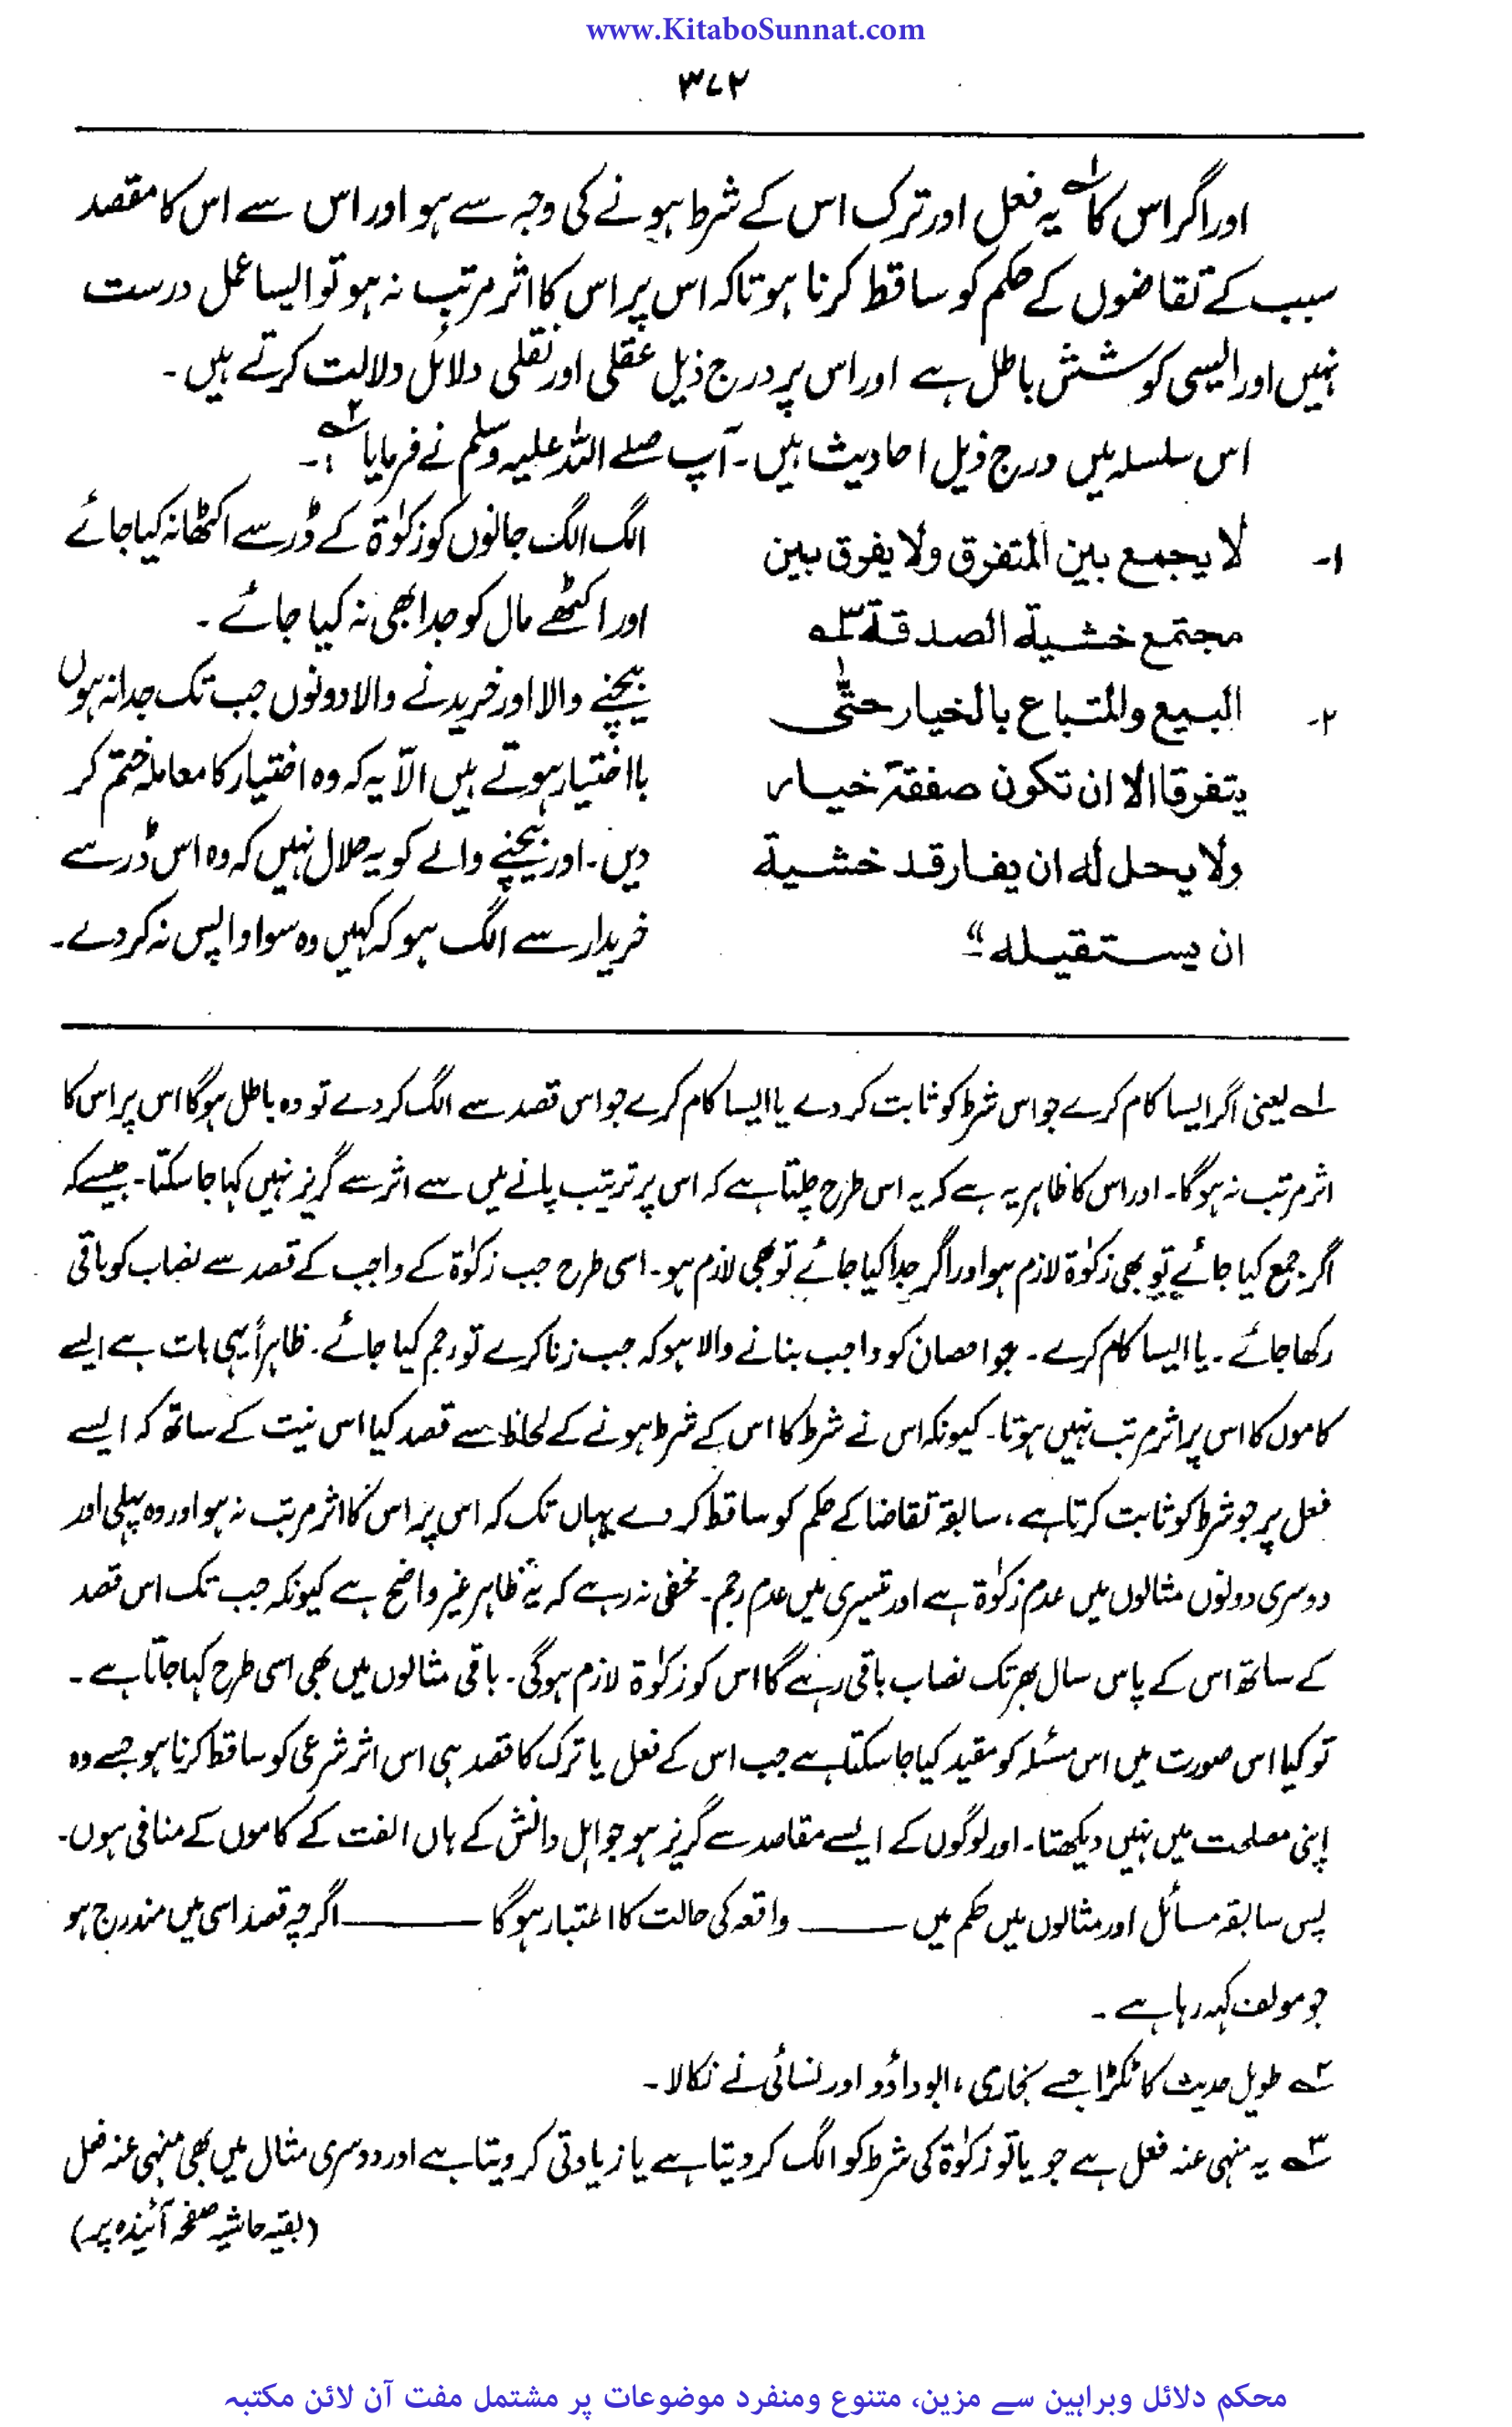 www.KitaboSunnat.com
۳۷۲
اور اگر اس کا۱؎ یہ فعل اور ترک اس کے شرط ہونے کی وجہ سے ہو اور اس سے اس کا مقصد
سبب کے تقاضوں کے حکم کو ساقط کرنا ہو تاکہ اس پر اس کا اثر مرتب نہ ہو تو ایسا عمل درست
نہیں اور ایسی کوشش باطل ہے اور اس پر درج ذیل عقلی اور نقلی دلائل دلالت کرتے ہیں۔
اس سلسلہ میں درج ذیل احادیث ہیں۔ آپ صلے اللہ علیہ وسلم نے فرمایا۲؎:۔
۱۔ لا یجمع بین المتفرق ولا یفرق بین
مجتمع خشیۃ الصدقۃ۳؎
الگ الگ جانوں کو زکوٰۃ کے ڈر سے اکٹھا نہ کیا جائے
اور اکٹھے مال کو جدا بھی نہ کیا جائے۔
۲۔ البیع والمتباع بالخیار حتّٰی
یتفرقا الا ان تکون صفقۃ خیار
ولا یحل لہ ان یفارقہ خشیۃ
ان یستقیلہ"
بیچنے والا اور خریدنے والا دونوں جب تک جدا نہ ہوں
بااختیار ہوتے ہیں الّا یہ کہ وہ اختیار کا معاملہ ختم کر
دیں۔ اور بیچنے والے کو یہ حلال نہیں کہ وہ اس ڈر سے
خریدار سے الگ ہو کہ کہیں وہ سودا واپس نہ کردے۔
۱؎ یعنی اگر ایسا کام کرے جو اس شرط کو ثابت کردے یا ایسا کام کرے جو اس قصد سے الگ کردے تو وہ باطل ہوگا اس پر اس کا
اثر مرتب نہ ہوگا۔ اور اس کا ظاہر یہ ہے کہ یہ اس طرح چلتا ہے کہ اس پر ترتیب پانے میں سے اثر سے گریز نہیں کہا جاسکتا۔ جیسے کہ
اگر جمع کیا جائے تو بھی زکوٰۃ لازم ہو اور اگر جدا کیا جائے تو بھی لازم ہو۔ اسی طرح جب زکوٰۃ کے واجب کے قصد سے نصاب کو باقی
رکھا جائے۔ یا ایسا کام کرے۔ جو احصان کو واجب بنانے والا ہو کہ جب زنا کرے تو رجم کیا جائے۔ ظاہراً یہی بات ہے ایسے
کاموں کا اس پر اثر مرتب نہیں ہوتا۔ کیونکہ اس نے شرط کا اس کے شرط ہونے کے لحاظ سے قصد کیا اس نیت کے ساتھ کہ ایسے
فعل پر جو شرط کو ثابت کرتا ہے، سابقہ تقاضا کے حکم کو ساقط کردے یہاں تک کہ اس پر اس کا اثر مرتب نہ ہو اور وہ پہلی اور
دوسری دونوں مثالوں میں عدم زکوٰۃ ہے اور تیسری میں عدم رجم۔ مخفی نہ رہے کہ یہ ظاہر غیر واضح ہے کیونکہ جب تک اس قصد
کے ساتھ اس کے پاس سال بھر تک نصاب باقی رہے گا اس کو زکوٰۃ لازم ہوگی۔ باقی مثالوں میں بھی اسی طرح کہا جاتا ہے۔
تو کیا اس صورت میں اس مسئلہ کو مقید کیا جاسکتا ہے جب اس کے فعل یا ترک کا قصد ہی اس اثر شرعی کو ساقط کرنا ہو جسے وہ
اپنی مصلحت میں نہیں دیکھتا۔ اور لوگوں کے ایسے مقاصد سے گریز ہو جو اہل دانش کے ہاں الفت کے کاموں کے منافی ہوں۔
پس سابقہ مسائل اور مثالوں میں حکم میں ——— واقعہ کی حالت کا اعتبار ہوگا ——— اگرچہ قصد اسی میں مندرج ہو
جو مولف کہہ رہا ہے۔
۲؎ طویل حدیث کا ٹکڑا جسے بخاری، ابوداؤد اور نسائی نے نکالا۔
۳؎ یہ منہی عنہ فعل ہے جو یا تو زکوٰۃ کی شرط کو الگ کر دیتا ہے یا زیادتی کر دیتا ہے اور دوسری مثال میں بھی منہی عنہ فعل
(بقیہ حاشیہ صفحہ آئیندہ پر)
محکم دلائل وبراہین سے مزین، متنوع ومنفرد موضوعات پر مشتمل مفت آن لائن مکتبہ